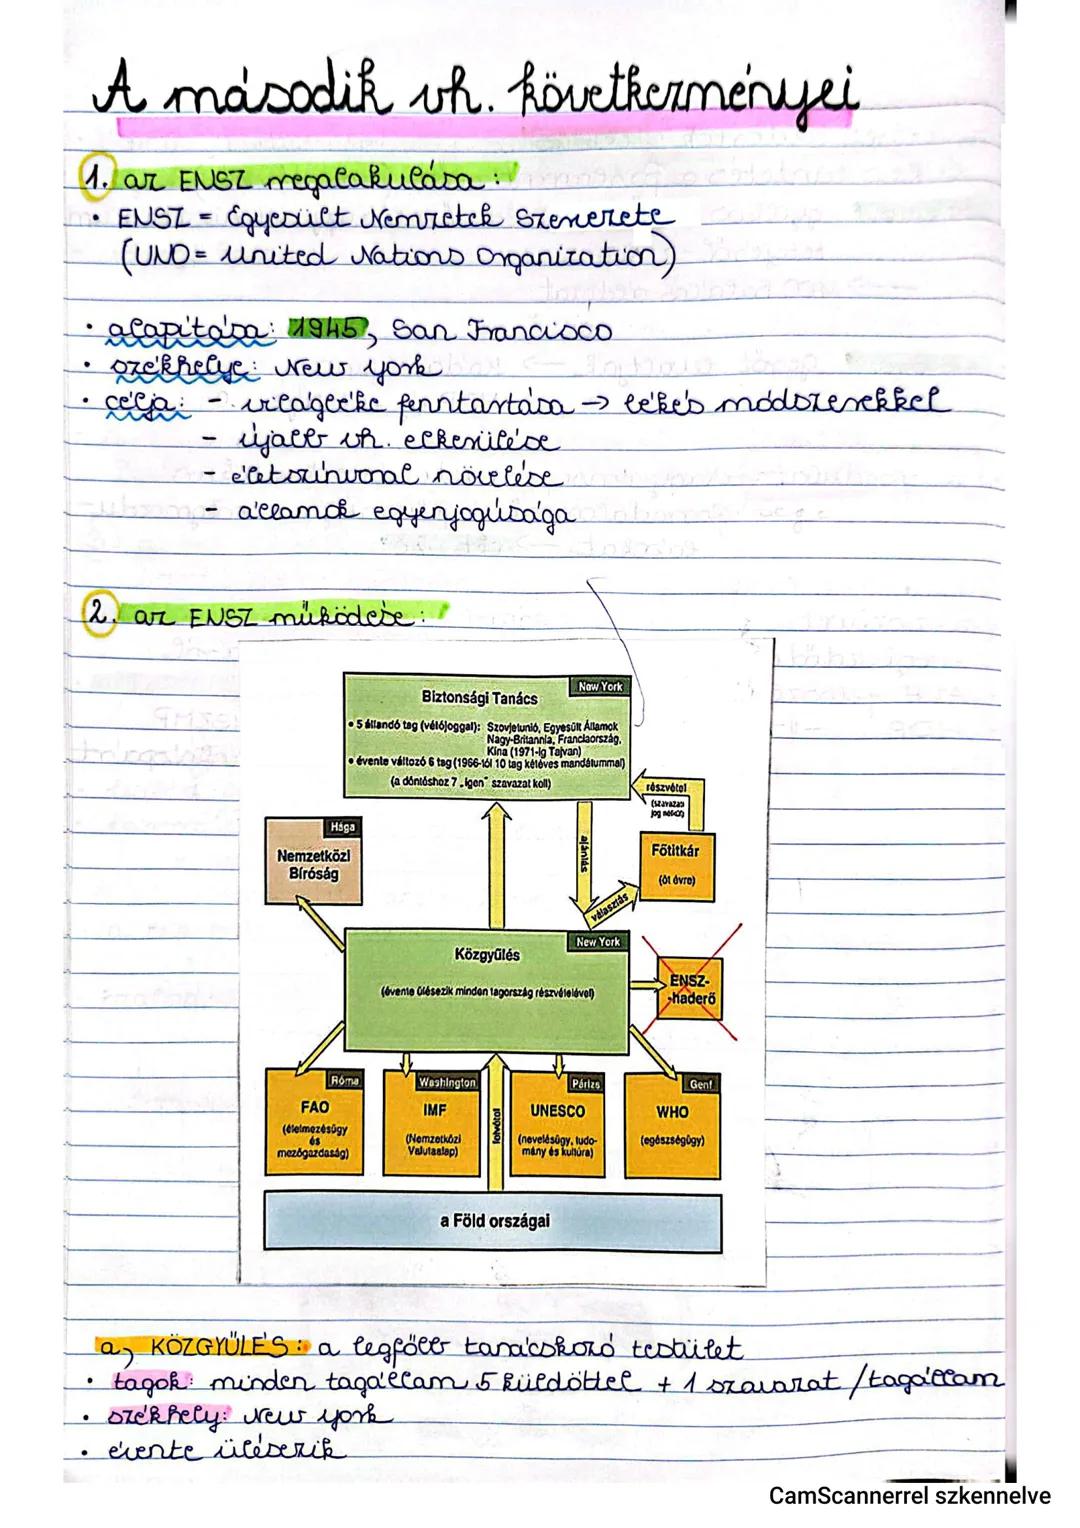 A második vh. következményei
1. az ENSZ megalakulása:
• ENSZ = Egyesült Nemzetek Szervezete
(UNO = United Nations Organization)
• alapítása: 1945, San Francisco
• székhelye: New York
• célja: - világbéke fenntartása → békés módszerekkel
- újabb vh. elkerülése
- életszínvonal növelése
- államok egyenjogúsága
2. az ENSZ működése:
New York
Biztonsági Tanács
• 5 állandó tag (vétójoggal): Szovjetunió, Egyesült Államok
Nagy-Britannia, Franciaország,
Kína (1971-ig Tajvan)
• évente változó 6 tag (1966-tól 10 tag kétéves mandátummal)
(a döntéshez 7 „igen" szavazat kell)
részvétel
(szavazati
jog nélkül)
Hága
Nemzetközi
Bíróság
ajánlás
Főtitkár
(öt évre)
választás
New York
Közgyűlés
(évente ülésezik minden tagország részvételével)
ENSZ-
-haderő
Róma
FAO
(élelmezésügy
és
mezőgazdaság)
Washington
IMF
(Nemzetközi
Valutaalap)
felvétel
Párizs
UNESCO
(nevelésügy, tudo-
mány és kultúra)
Genf
WHO
(egészségügy)
a Föld országai
a, KÖZGYŰLÉS: a legfőbb tanácskozó testület
• tagok: minden tagállam 5 küldöttel + 1 szavazat /tagállam
• székhely: New York
• évente ülésezik
CamScannerrel szkennelve